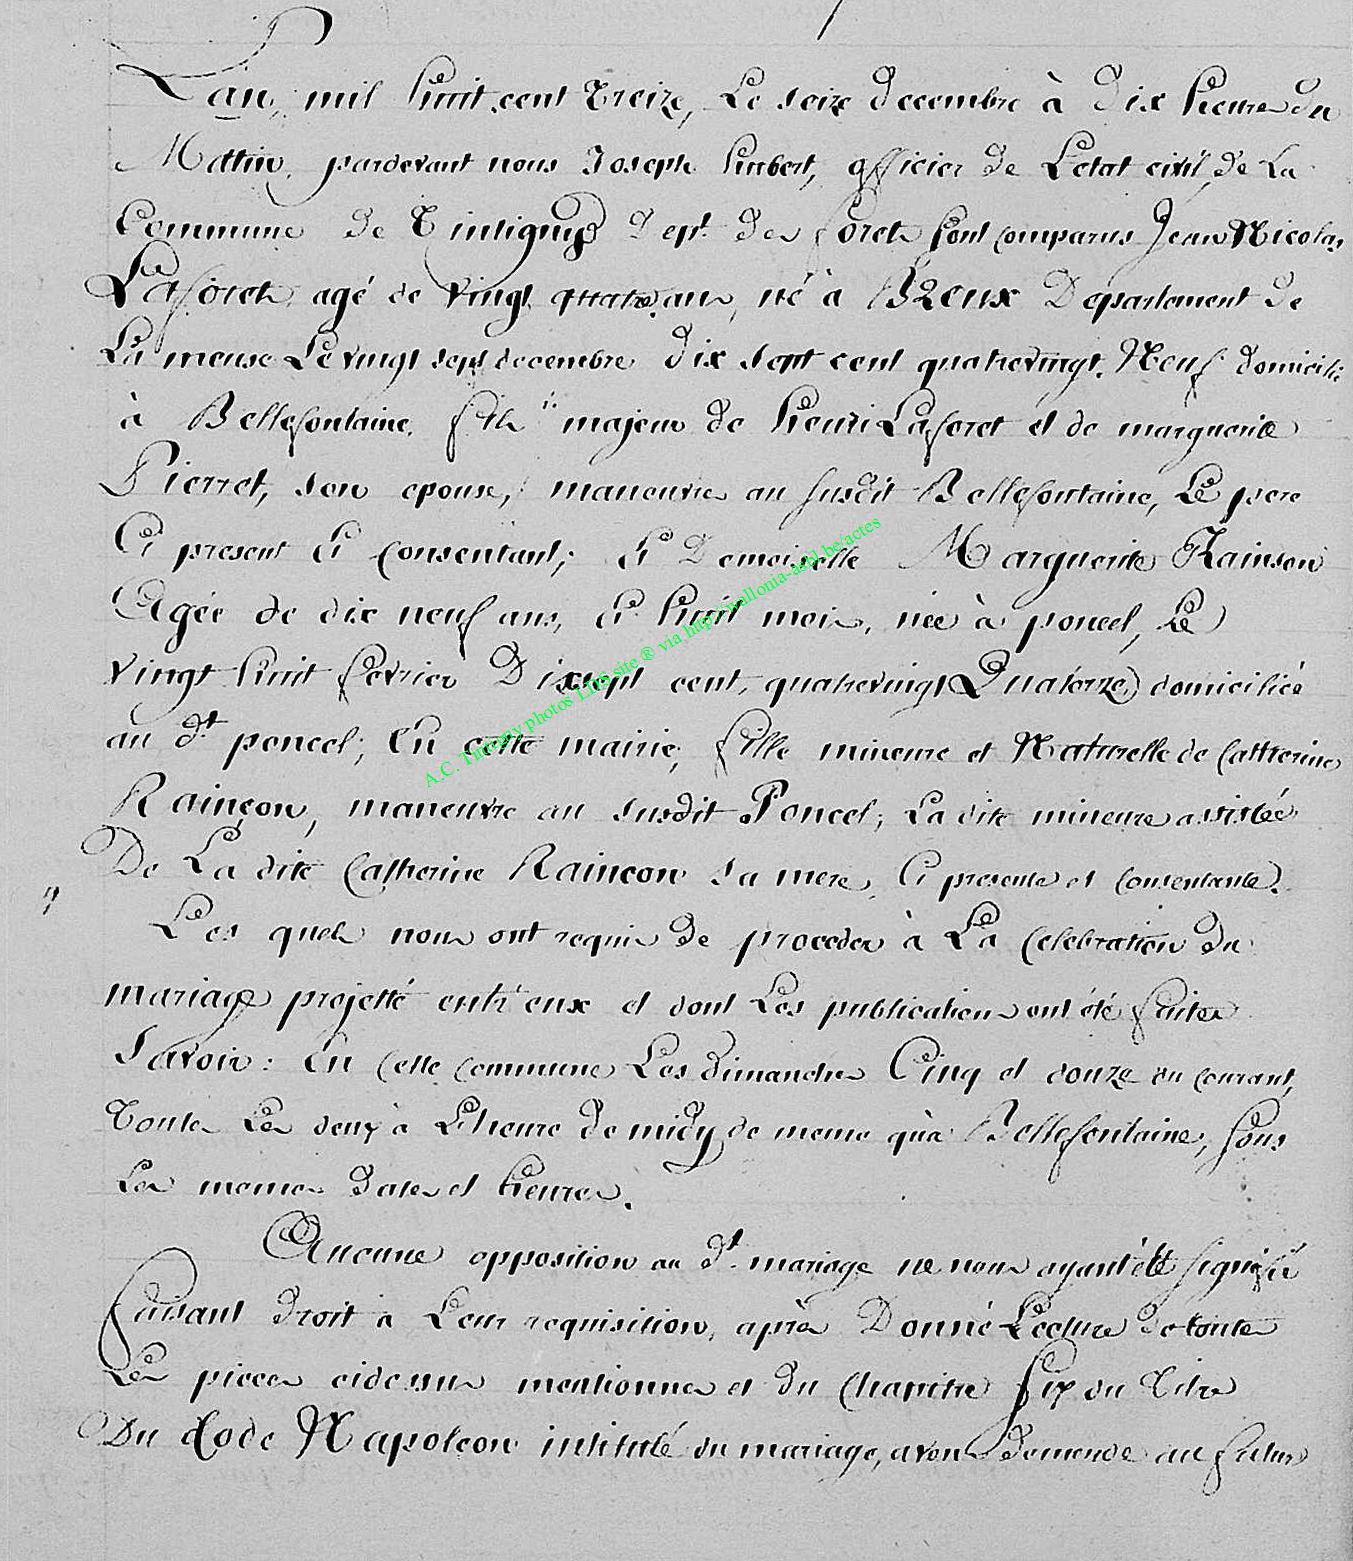 L'an, mil huit cent treize, Le seize decembre à dix heures du
Mattin, pardevant nous Joseph hubert, officier de L'etat civil, de La
Commune de Tintigny Dept. des forets sont comparus Jean Nicolas
Laforet, agé de vingt quatre ans, né à BREUX Departement de
La meuse Le vingt sept decembre dix sept cent quatrevingt Neuf domicilié
à Bellefontaine, fils majeur de henri Laforet et de marguerite
Pierret, son epouse, maneuvres au susdit Bellefontaine, Le pere
Ci present et consentant; et Demoiselle Marguerite Rainson
Agée de dix neuf ans, et huit mois, née à poncel, Le
vingt huit fevrier Dixsept cent, quatrevingt Quatorze, domiciliée
au dt poncel; En cette mairie, fille mineure et Naturelle de Catherine
Rainçon, maneuvre au susdit Poncel; La dite mineure assistée
De La dite Catherine Rainçon sa mere, Ci presente et consentante.
Les quels nous ont requis de proceder à La Celebration du
mariage projetté entr'eux et dont Les publications ont été faites
Savoir: En Cette Commune Les dimanches Cinq et douze du courant,
Toutes Les deux à L'heure de midy de meme qu'à Bellefontaine, sous
Les memes dates et heures.
Aucune opposition au dt. mariage ne nous ayant été signifié
faisant droit à Leur requisition, après Donné Lecture de toutes
Les pieces cidessus mentionnes et du Chapitre six du Titre
Du Code Napoleon intitulé du mariage, avons demendé au futur
A.C. Tintigny photos LDS site ® via http://wallonia-asbl.be/actes